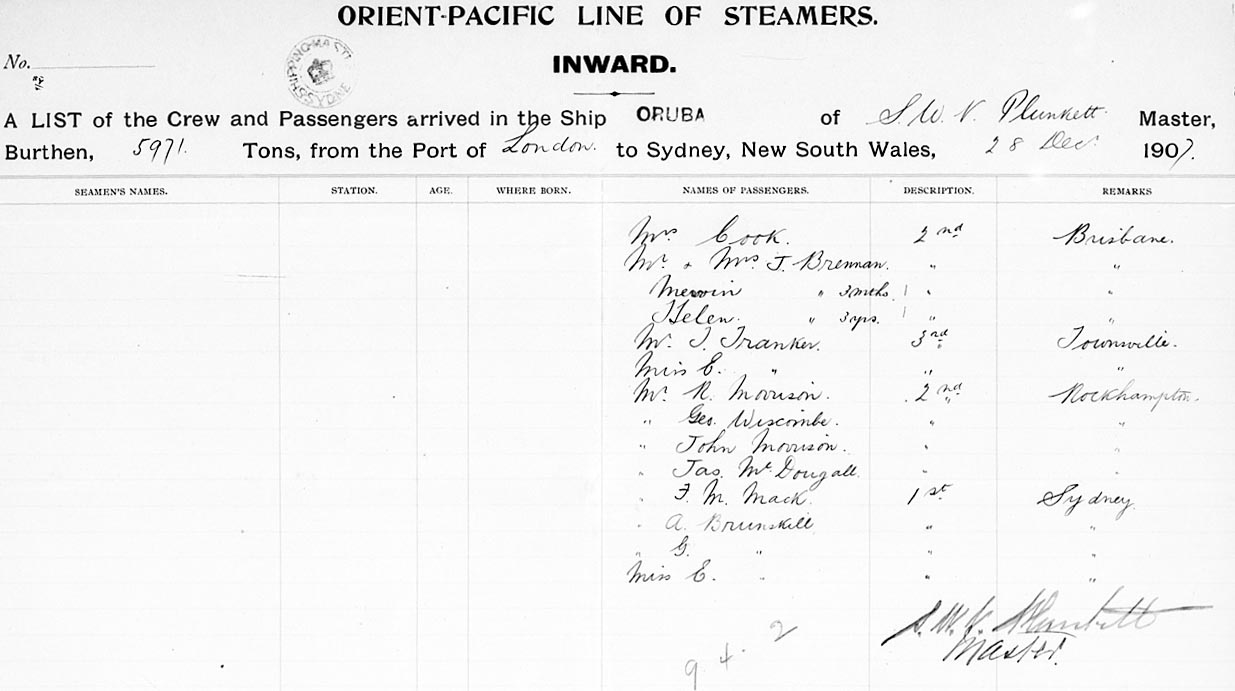 ORIENT-PACIFIC LINE OF STEAMERS.
No.
INWARD.
SHIPPING MASTE SYDNE
A LIST of the Crew and Passengers arrived in the Ship ORUBA of S. W. V. Plunkett Master,
Burthen, 5971. Tons, from the Port of London. to Sydney, New South Wales, 28 Dec. 1907.
SEAMEN'S NAMES. STATION. AGE. WHERE BORN. NAMES OF PASSENGERS. DESCRIPTION. REMARKS
Mrs Cook. 2nd Brisbane.
Mr. & Mrs J. Brennan. " "
Mervin " 3 mths. 1 " "
Helen. " 3 yrs. 1 " "
Mr. J. Tranker. 3rd Townsville.
Miss E. " " "
Mr. R. Morrison. 2nd Rockhampton.
" Geo. Wiscombe. " "
" John Morrison. " "
" Jas. McDougall. " "
" F. M. Mack. 1st Sydney.
" A. Brunskill " "
" G. " " "
Miss E. " " "
S. W. V. Plunkett
Master.
9 4. 2